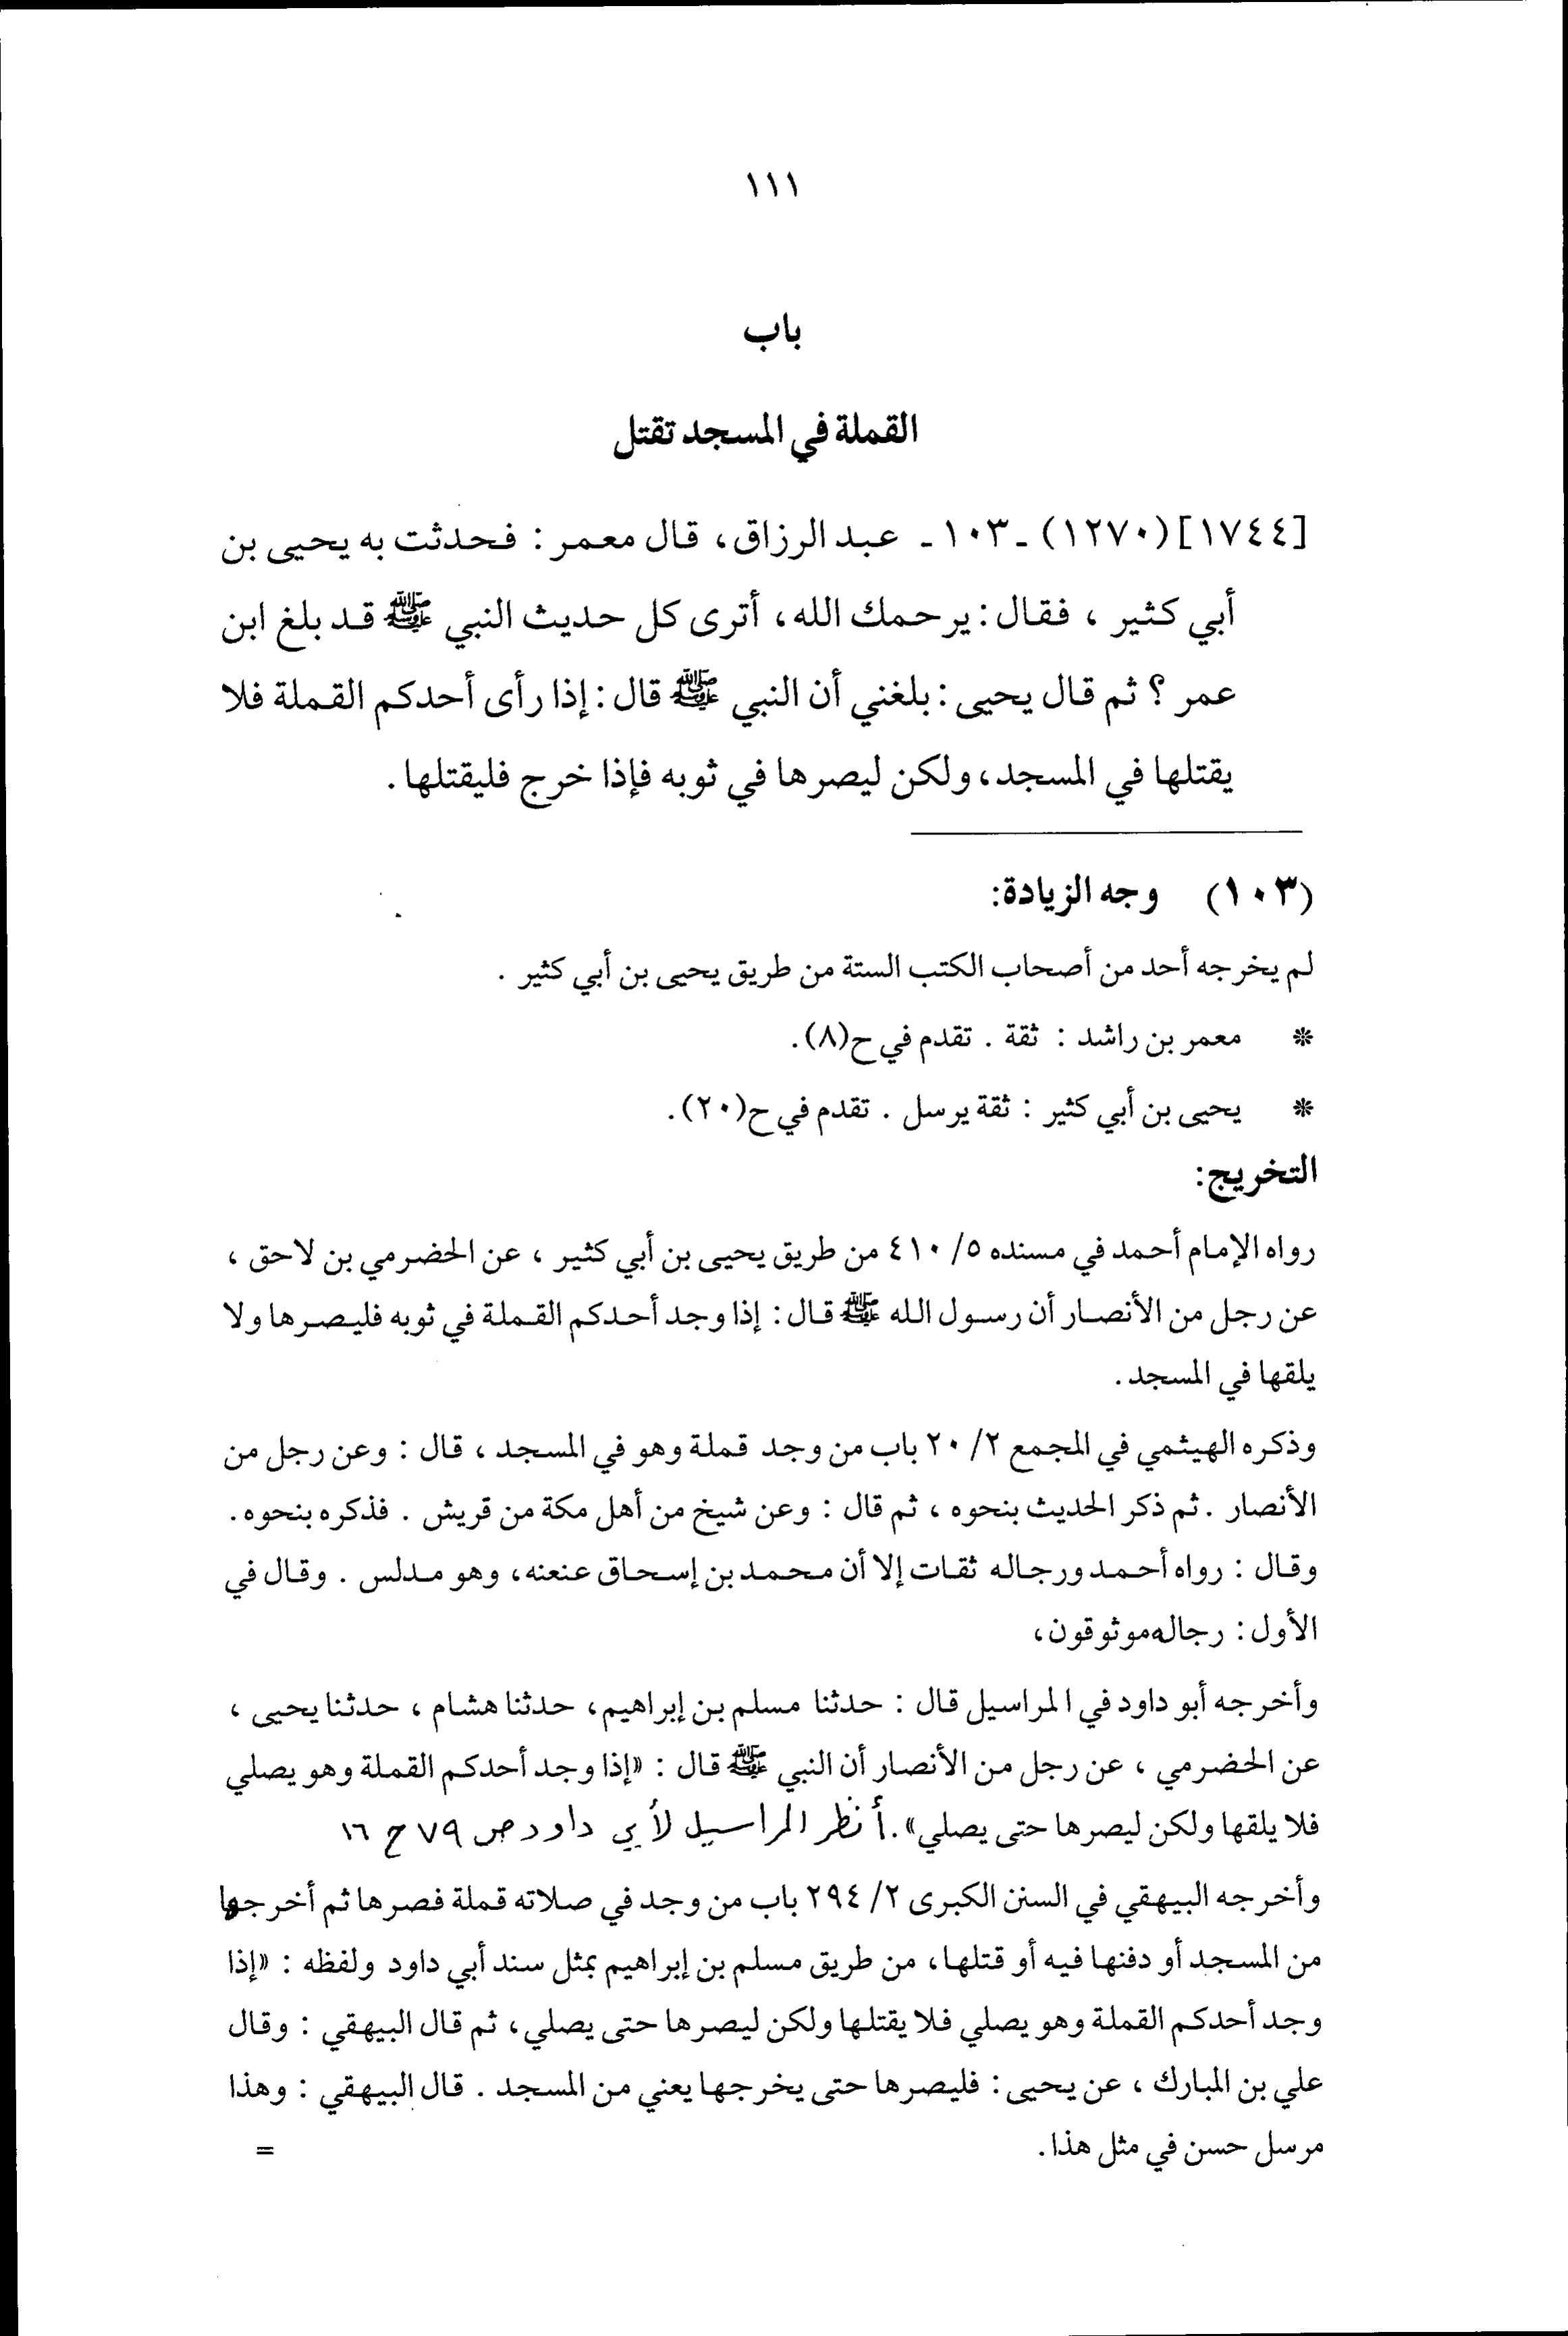 ١١١
باب
القملة في المسجد تقتل
[١٧٤٤] (١٢٧٠) ـ ١٠٣ ـ عبد الرزاق، قال معمر : فحدثت به يحيى بن
أبي كثير ، فقال : يرحمك الله، أترى كل حديث النبي ﷺ قد بلغ ابن
عمر ؟ ثم قال يحيى : بلغني أن النبي ﷺ قال : إذا رأى أحدكم القملة فلا
يقتلها في المسجد، ولكن ليصرها في ثوبه فإذا خرج فليقتلها .
(١٠٣) وجه الزيادة:
لم يخرجه أحد من أصحاب الكتب الستة من طريق يحيى بن أبي كثير .
* معمر بن راشد : ثقة . تقدم في ح(٨).
* يحيى بن أبي كثير : ثقة يرسل . تقدم في ح(٢٠).
التخريج:
رواه الإمام أحمد في مسنده ٥/ ٤١٠ من طريق يحيى بن أبي كثير ، عن الحضرمي بن لاحق ،
عن رجل من الأنصار أن رسول الله ﷺ قال : إذا وجد أحدكم القملة في ثوبه فليصرها ولا
يلقها في المسجد .
وذكره الهيثمي في المجمع ٢/ ٢٠ باب من وجد قملة وهو في المسجد ، قال : وعن رجل من
الأنصار . ثم ذكر الحديث بنحوه ، ثم قال : وعن شيخ من أهل مكة من قريش . فذكره بنحوه .
وقال : رواه أحمد ورجاله ثقات إلا أن محمد بن إسحاق عنعنه، وهو مدلس . وقال في
الأول : رجاله موثوقون،
وأخرجه أبو داود في المراسيل قال : حدثنا مسلم بن إبراهيم، حدثنا هشام ، حدثنا يحيى ،
عن الحضرمي ، عن رجل من الأنصار أن النبي ﷺ قال : «إذا وجد أحدكم القملة وهو يصلي
فلا يلقها ولكن ليصرها حتى يصلي» . أنظر المراسيل لأبي داود ص ٧٩ ح ١٦
وأخرجه البيهقي في السنن الكبرى ٢/ ٢٩٤ باب من وجد في صلاته قملة فصرها ثم أخرجها
من المسجد أو دفنها فيه أو قتلها، من طريق مسلم بن إبراهيم بمثل سند أبي داود ولفظه : «إذا
وجد أحدكم القملة وهو يصلي فلا يقتلها ولكن ليصرها حتى يصلي، ثم قال البيهقي : وقال
علي بن المبارك ، عن يحيى : فليصرها حتى يخرجها يعني من المسجد . قال البيهقي : وهذا
مرسل حسن في مثل هذا . =